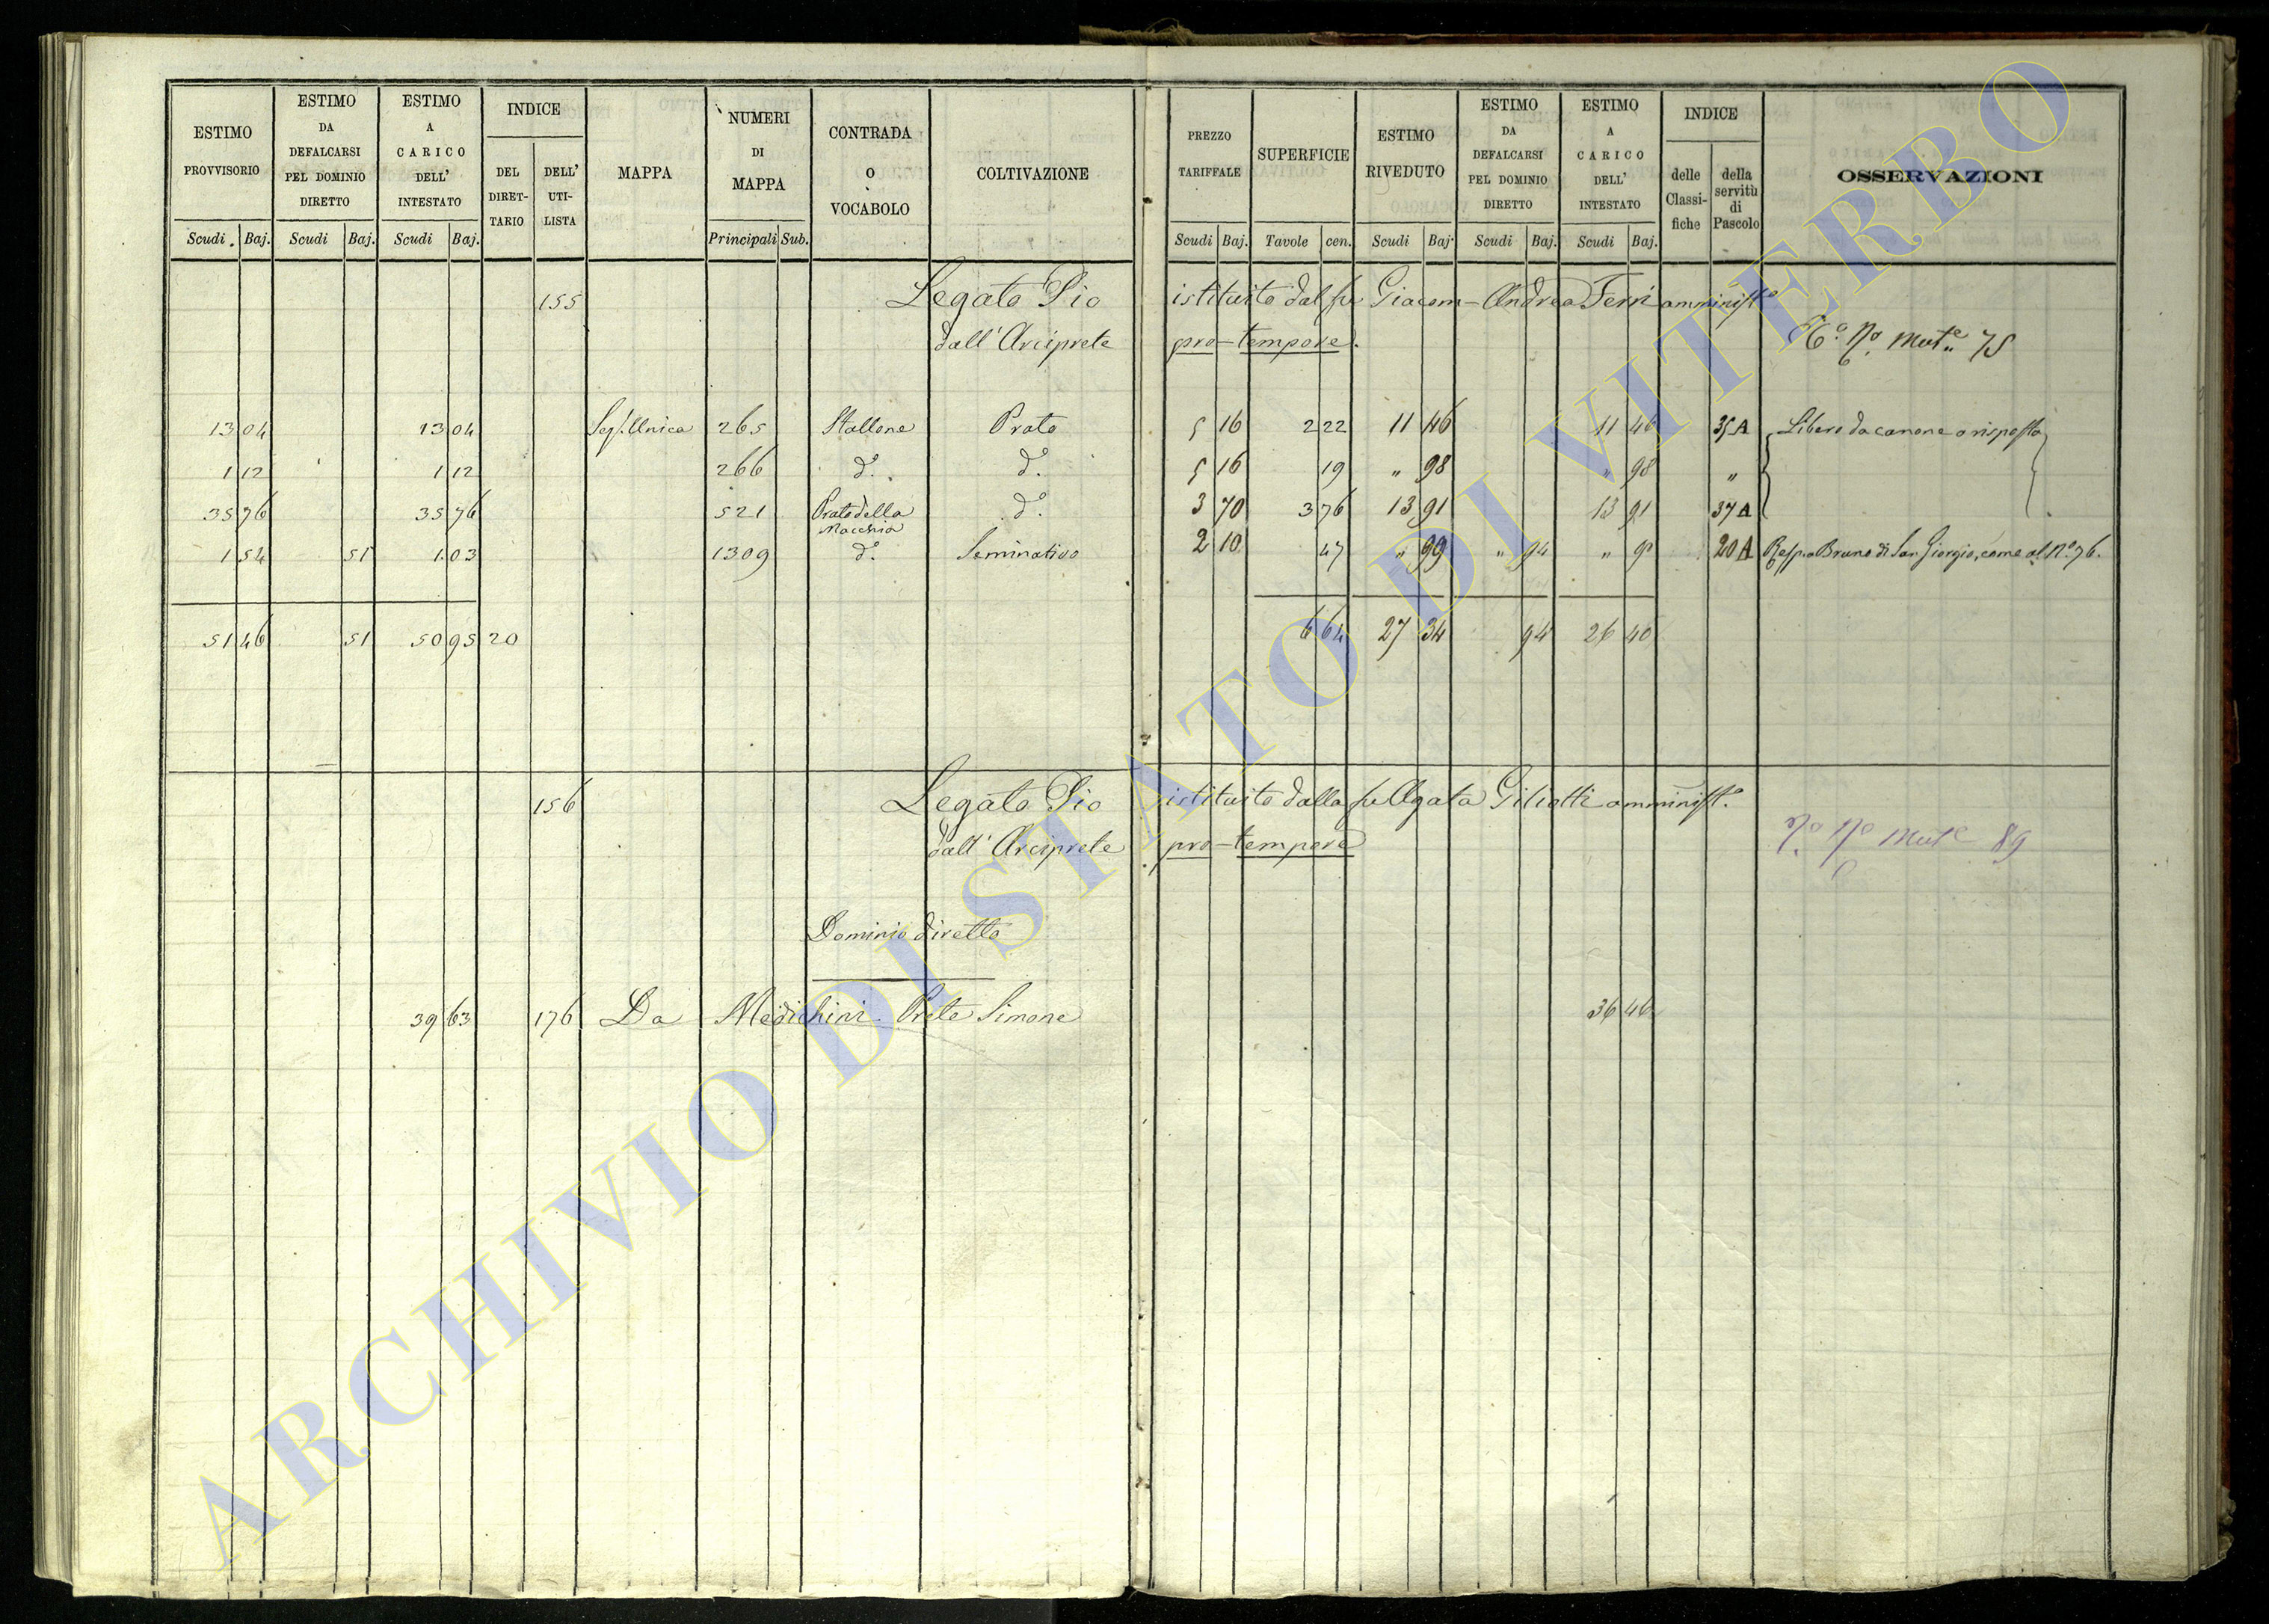 ESTIMO PROVVISORIO | ESTIMO DA DEFALCARSI PEL DOMINIO DIRETTO | ESTIMO A CARICO DELL' INTESTATO | INDICE | MAPPA | NUMERI DI MAPPA | CONTRADA O VOCABOLO | COLTIVAZIONE | PREZZO TARIFFALE | SUPERFICIE | ESTIMO RIVEDUTO | ESTIMO DA DEFALCARSI PEL DOMINIO DIRETTO | ESTIMO A CARICO DELL' INTESTATO | INDICE | OSSERVAZIONI
DEL DIRETTARIO | DELL' UTILISTA | delle Classifiche | della servitù di Pascolo
Scudi | Baj. | Scudi | Baj. | Scudi | Baj. | Principali | Sub. | Scudi | Baj. | Tavole | cen. | Scudi | Baj. | Scudi | Baj. | Scudi | Baj.
155 Legato Pio istituito dal fu Giacom-Andrea Ferri amminist.o
dall' Arciprete pro-tempore.
Mut.e 75
13 04 | 13 04 | Sez. Unica | 265 | Stallone | Prato | 5 16 | 2 22 | 11 46 | 11 46 | 35 A | Libero da canone o risposta
1 12 | 1 12 | 266 | d.o | d.o | 5 16 | 19 | " 98 | " 98 | "
35 76 | 35 76 | 521 | Prato della Macchia | d.o | 3 70 | 3 76 | 13 91 | 13 91 | 37 A
1 54 | 51 | 1 03 | 1309 | d.o | Seminativo | 2 10 | 47 | " 99 | " 94 | " | 20 A | Risp. a Bruno di San Giorgio, come al N.o 76.
51 46 | 51 | 50 95 | 20 | 6 64 | 27 34 | 94 | 26 40
156 Legato Pio istituito dalla fu Agata Giliotti amminist.o
dall' Arciprete pro-tempore
Mut.e 89
Dominio diretto
39 63 | 176 | Da Medichini Prete Simone | 36 46
ARCHIVIO DI STATO DI VITERBO